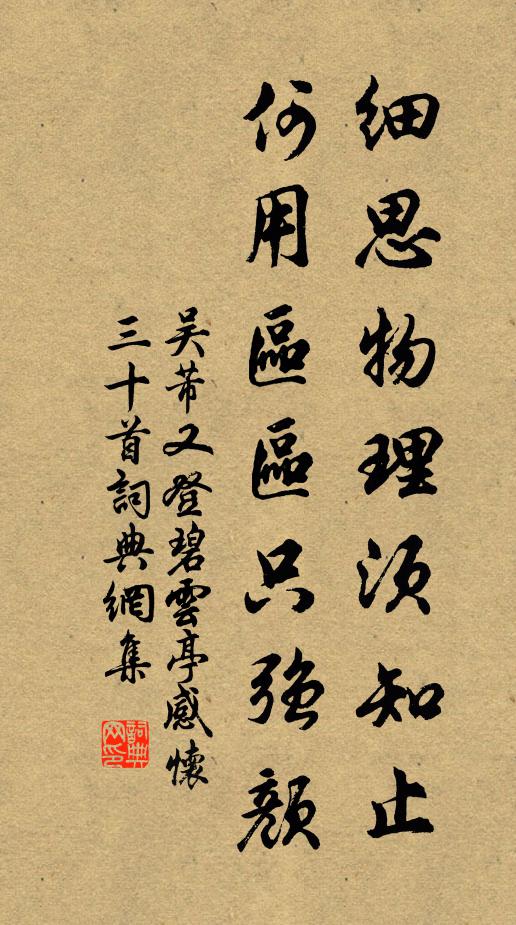 細思物理須知止
何用區區只強顔
吳芾又登碧雲亭感懷
三十首詞典網集
詞典
网印